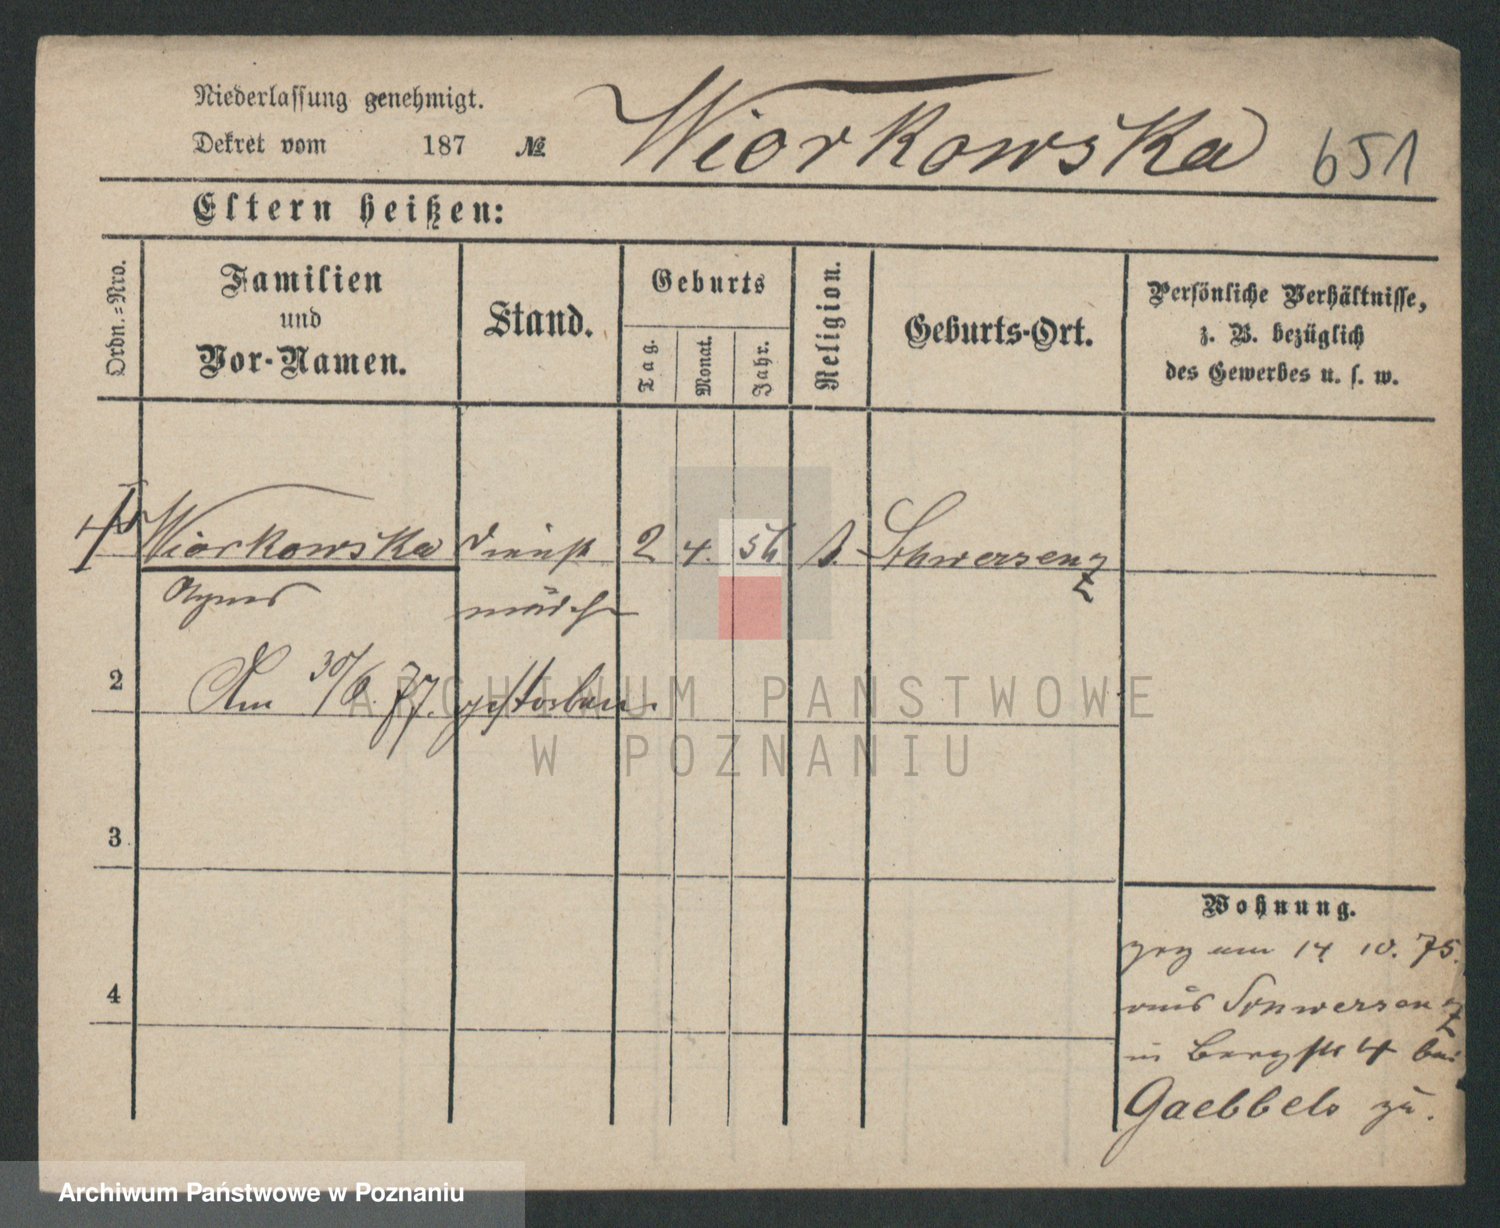 Niederlassung genehmigt.
Dekret vom 187 №
Wiorkowska 651
Eltern heißen:
Ordn.=Nro.
Familien
und
Vor-Namen.
Stand.
Geburts
Tag.
Monat.
Jahr.
Religion.
Geburts-Ort.
Persönliche Verhältnisse,
z. B. bezüglich
des Gewerbes u. s. w.
Wiorkowska Dienst 2 4. 56. Schwersenz
Agnes mädch
2
Am 30/6 77. gestorben.
3
4
Wohnung.
zog am 14 10. 75.
aus Schwersenz
in Bergstr 4 bei
Gaebbels zu.
ARCHIWUM PAŃSTWOWE
W POZNANIU
Archiwum Państwowe w Poznaniu